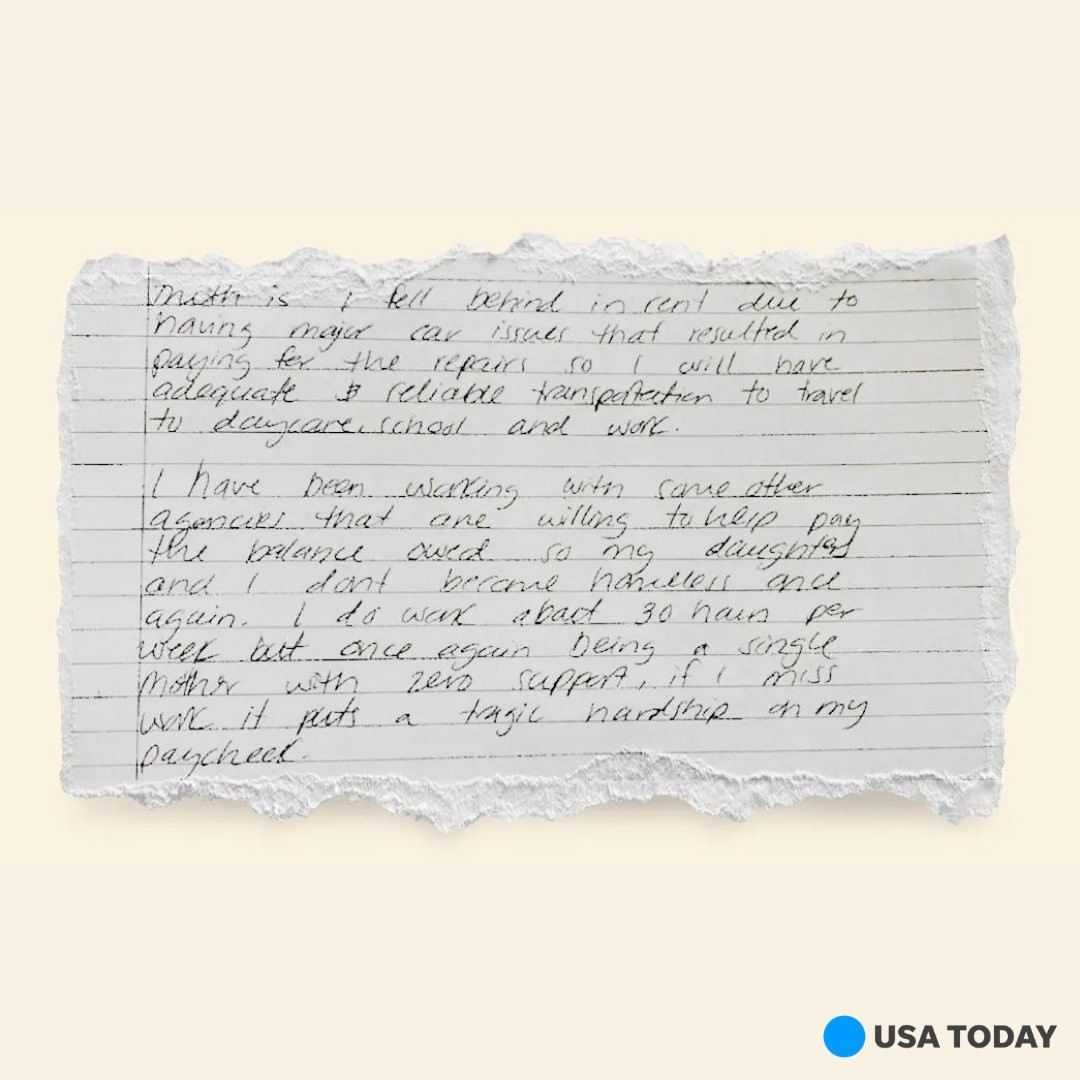 truth is I fell behind in rent due to
having major car issues that resulted in
paying for the repairs so I will have
adequate & reliable transportation to travel
to daycare, school and work.
I have been working with some other
agencies that are willing to help pay
the balance owed so my daughters
and I dont become homeless once
again. I do work about 30 hours per
week but once again being a single
mother with zero support, if I miss
work it puts a tragic hardship on my
paycheck.
USA TODAY